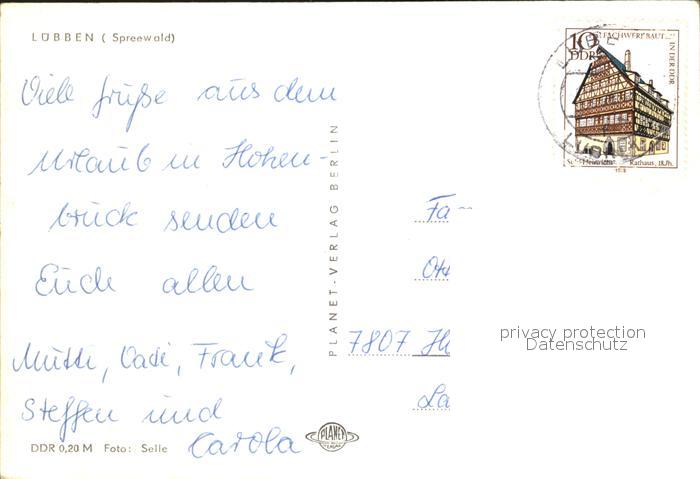 LÜBBEN ( Spreewald)
Viele Grüße aus dem
Urlaub in Hohen-
brück senden
Euch allen
Mutti, Vati, Frank,
Steffen und
Carola
DDR 0,20 M Foto: Selle
PLANET
PLANET-VERLAG BERLIN
10
DDR
FACHWERKBAUT
IN DER DDR
Rathaus, 18.Jh.
Fa
7807
privacy protection
Datenschutz